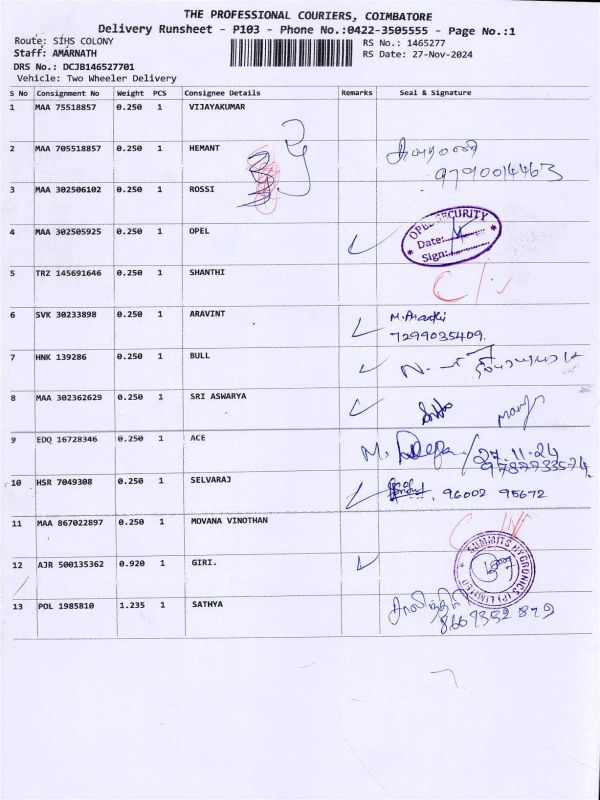 THE PROFESSIONAL COURIERS, COIMBATORE
Delivery Runsheet - P103 - Phone No.:0422-3505555 - Page No.:1
Route: SIHS COLONY RS No.: 1465277
Staff: AMARNATH RS Date: 27-Nov-2024
DRS No.: DCJB146527701
Vehicle: Two Wheeler Delivery
S No Consignment No Weight PCS Consignee Details Remarks Seal & Signature
1 MAA 75518857 0.250 1 VIJAYAKUMAR
2 MAA 705518857 0.250 1 HEMANT
9790014463
3 MAA 302506102 0.250 1 ROSSI
4 MAA 302505925 0.250 1 OPEL OPEL SECURITY
Date:
Sign:
5 TRZ 145691646 0.250 1 SHANTHI
6 SVK 30233898 0.250 1 ARAVINT
7299035409.
7 HNK 139286 0.250 1 BULL
8 MAA 302362629 0.250 1 SRI ASWARYA
9 EDQ 16728346 0.250 1 ACE M. Deepa/27.11.24
10 HSR 7049308 0.250 1 SELVARAJ 96002 95672
11 MAA 867022897 0.250 1 MOVANA VINOTHAN
12 AJR 500135362 0.920 1 GIRI. SUMMITS HYGRONICS (P) LIMITED
13 POL 1985810 1.235 1 SATHYA